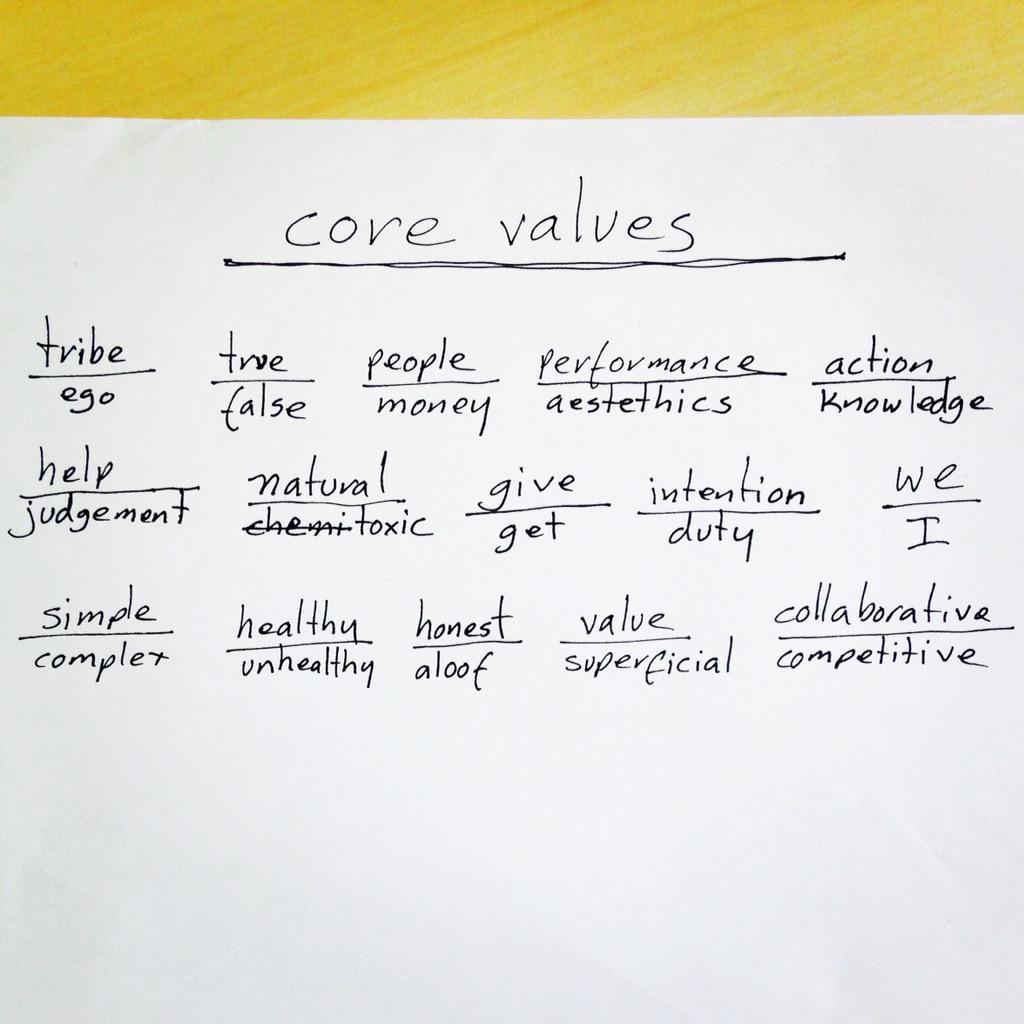 core values
tribe true people performance action
ego false money aestethics knowledge
help natural give intention we
judgement chemi toxic get duty I
simple healthy honest value collaborative
complex unhealthy aloof superficial competitive